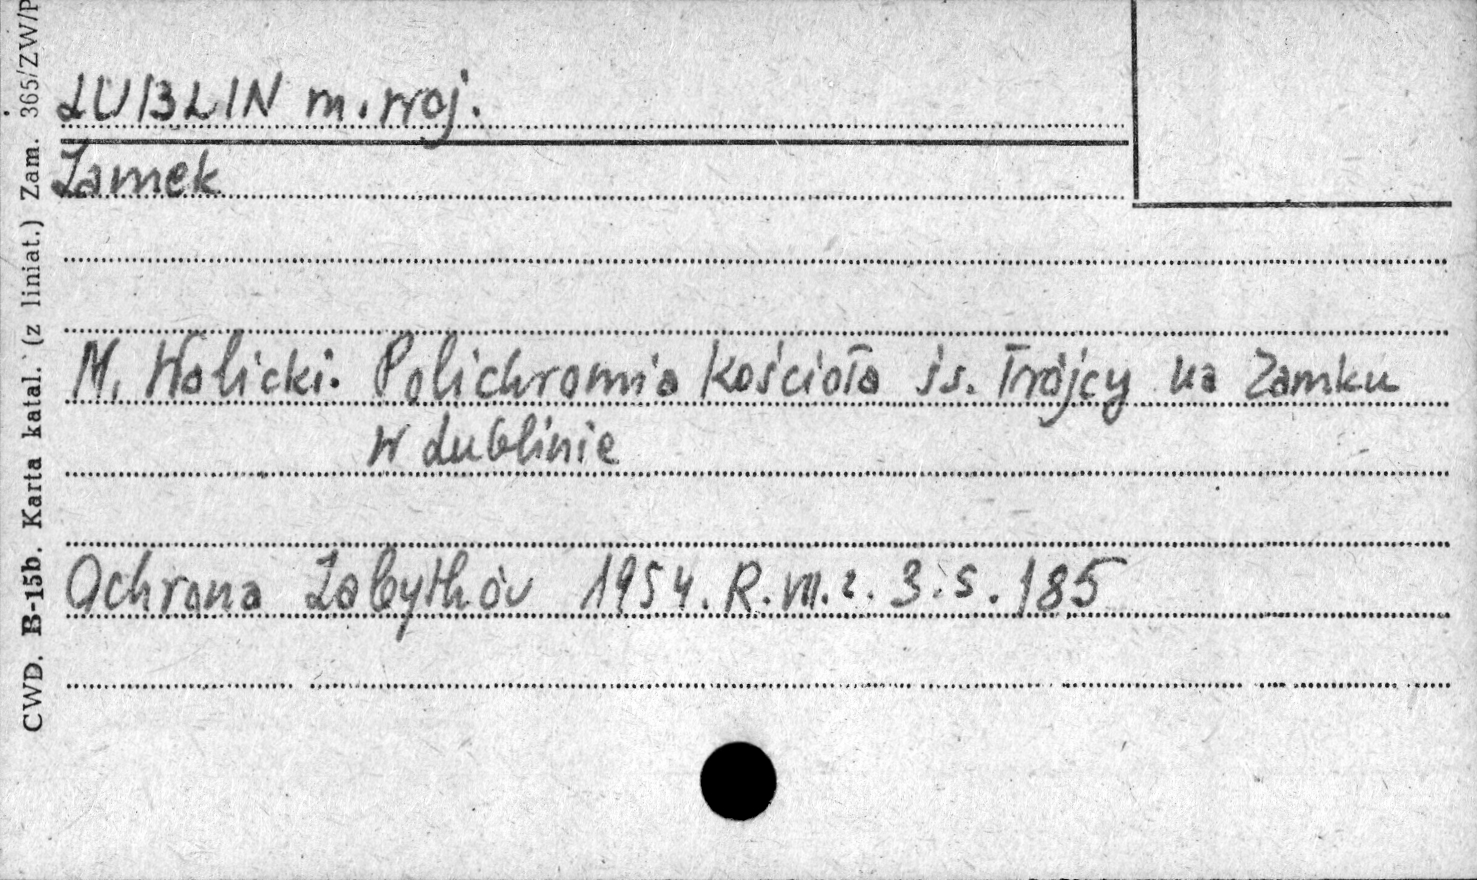 LUBLIN m. woj.
Zamek
M. Walicki. Polichromia Kościoła św. Trójcy na Zamku
w Lublinie
Ochrona Zabytków 1954. R. VII. z. 3. s. 185
CWD. B-15b. Karta katal. (z liniat.) Zam. 365/ZW/P